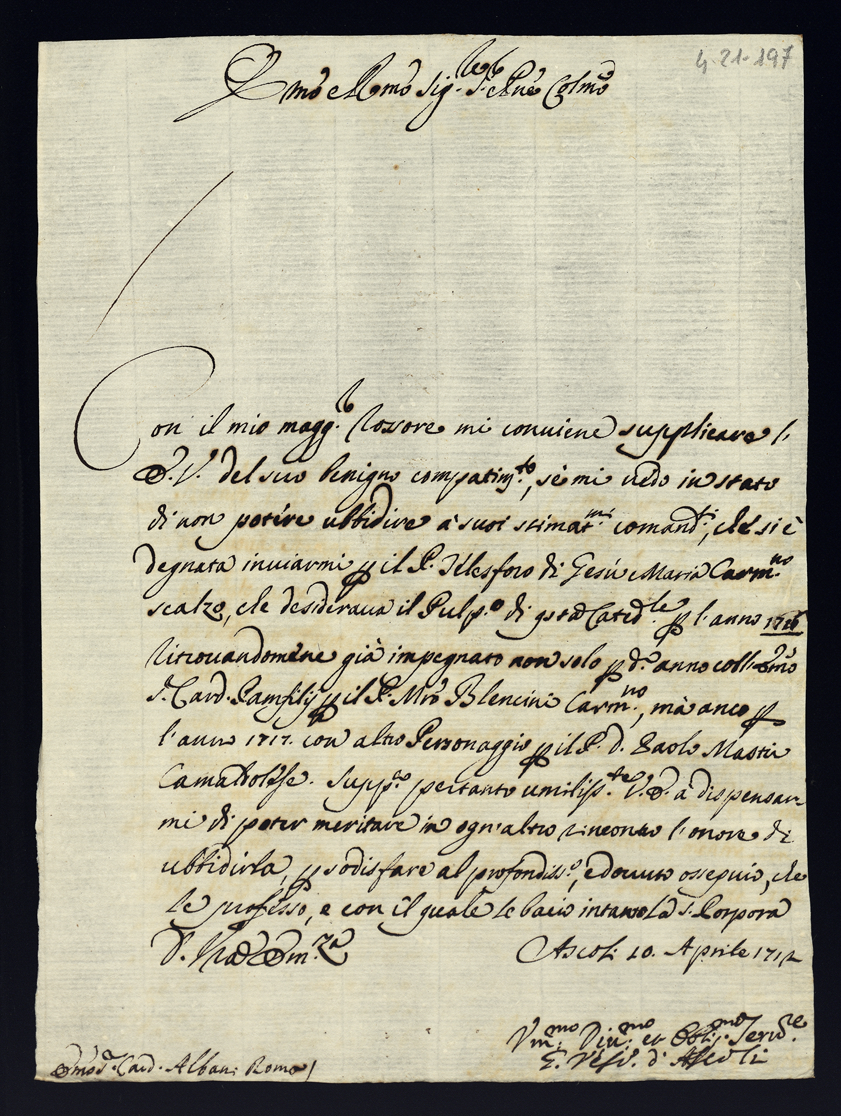 4-21-197
Emo e Rmo Sig.re S.r e Pne Colmo
Con il mio magg.r rossore mi conviene supplicare l'
E.V. del suo benigno compatim.to, se mi vedo in stato
di non potere ubbidire a' suoi stimat.mi comand.ti, che si è
degnata inviarmi p il P. Telesforo di Gesù e Maria Carm.no
scalzo, che desiderava il Pulp.o di qsta Cated.le p l'anno 1716
ritrovandomene già impegnato non solo p d.o anno coll' Emo
S.r Card. Pamfilij p il P. Mro Blencini Carm.no, mà anco p
l'anno 1717. con altro Personaggio p il P. D. Paolo Mastri
Camaldolese. Supp.co pertanto umiliss.te V.E. à dispensar
mi di poter meritare in ogn'altro rincontro l'onore di
ubbidirla, p sodisfare al profondiss.o, e dovuto ossequio, che
le professo, e con il quale le bacio intanto la S. Porpora
D. V'ra Em.za Ascoli 10. Aprile 1712
Vm.mo Div.mo et Obli.mo Serv.re
G. Vesc.o d'Ascoli
Emo S.r Card. Albani Roma